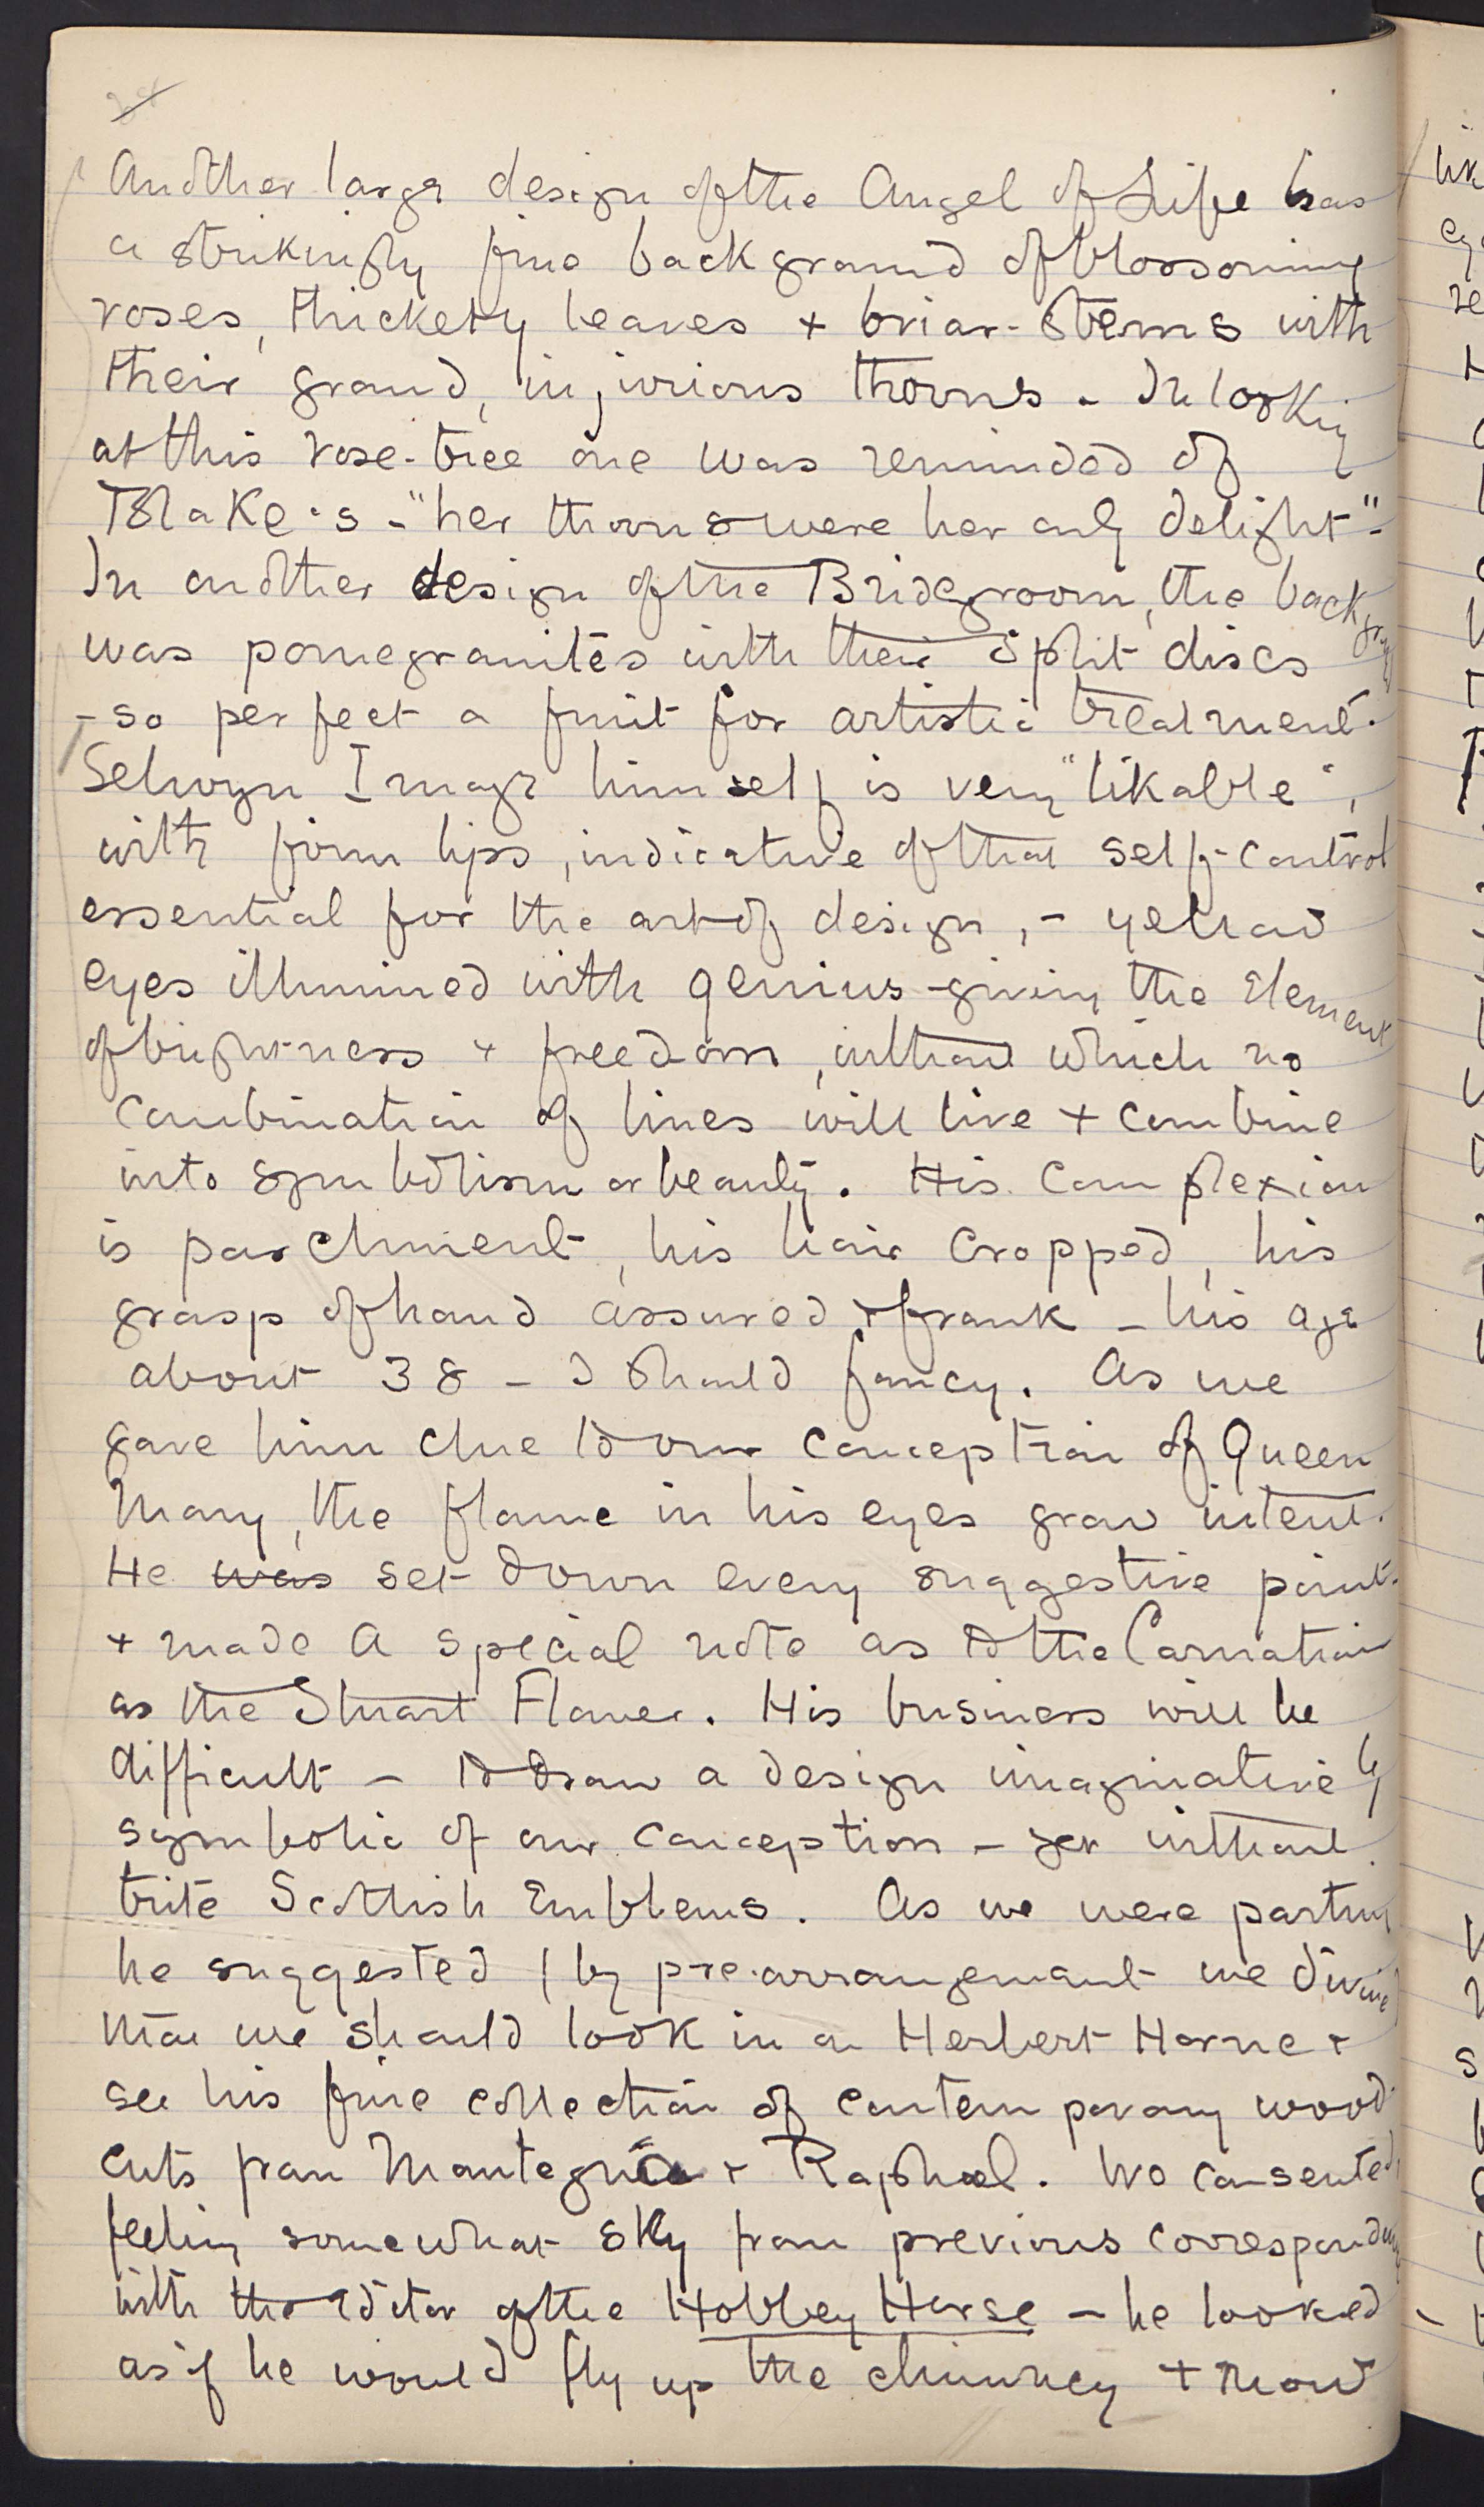 Another large design of the Angel of Life has
a strikingly fine background of blossoming
roses, thickety leaves + briar-stems with
their grand, injurious thorns. In looking
at this rose-tree one was reminded of
Blake's - "her thorns were her only delight" -
In another design of the Bridegroom, the backgrd
was pomegranites with their split discs
- so perfect a fruit for artistic treatment.
Selwyn Image himself is very "likable",
with firm lips, indicative of that self-control
essential for the art of design, - yet had
eyes illumined with genius - giving the element
of brightness + freedom, without which no
combination of lines will live + combine
into symbolism or beauty. His complexion
is parchment, his hair cropped, his
grasp of hand assured + frank - his age
about 38 - I should fancy. As we
gave him clue to our conception of Queen
Mary, the flame in his eyes grew intent.
He was set down every suggestive point
+ made a special note as to the Carnation
as the Stuart Flower. His business will be
difficult - to draw a design imaginatively
symbolic of our conception - yet without
trite Scottish Emblems. As we were parting
he suggested (by pre-arrangement we divined
that we should look in on Herbert Horne +
see his fine collection of contemporary wood
cuts from Mantegna + Raphael. We consented
feeling somewhat shy from previous correspondence
with the Editor of the Hobbey Horse - he looked
as if he would fly up the chimney +